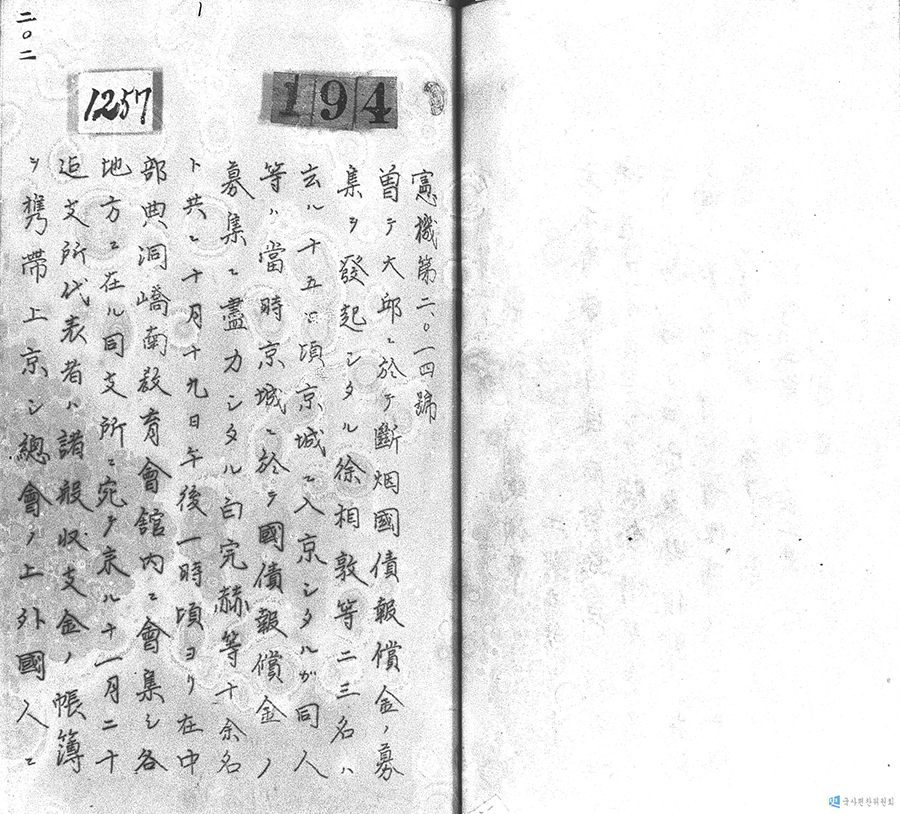 二〇二
1257
194
憲機第二〇一四號
曽テ大邱ニ於テ斷烟國債報償金ノ募
集ヲ發起シタル徐相敦等二三名ハ
去ル十五日頃京城ニ入京シタルガ同人
等ハ當時京城ニ於テ國債報償金ノ
募集ニ盡力シタル白完赫等十余名
ト共ニ十月十九日午後一時頃ヨリ在中
部典洞嶠南敎育會舘内ニ會集シ各
地方ニ在ル同支所ニ宛テ来ル十一月二十
迄支所代表者ハ諸般収支金ノ帳簿
ヲ携帶上京シ總會ノ上外國人ニ
국사편찬위원회